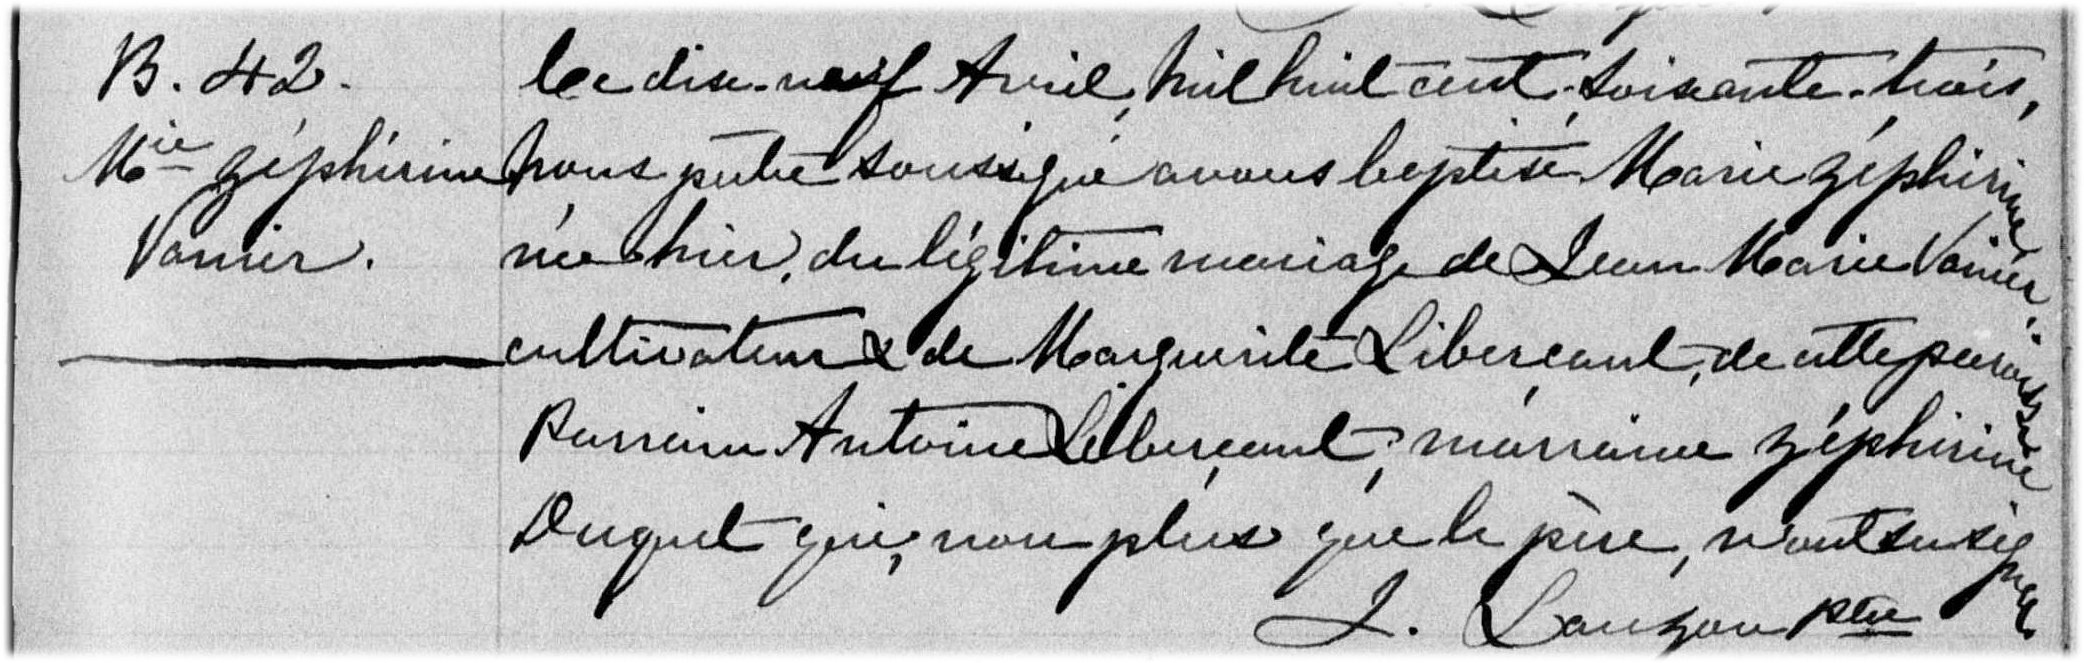 B. 42.
Mie Zéphirine
Vanier.
Le dix-neuf Avril, mil huit cent soixante-trois,
nous prêtre soussigné avons baptisé Marie Zéphirine
née hier, du légitime mariage de Jean Marie Vanier,
cultivateur & de Marguerite Libersant, de cette paroisse
Parrain Antoine Libersant, marraine Zéphirine
Duquet qui, non plus que le père, n'ont su signer
J. Lauzon ptre